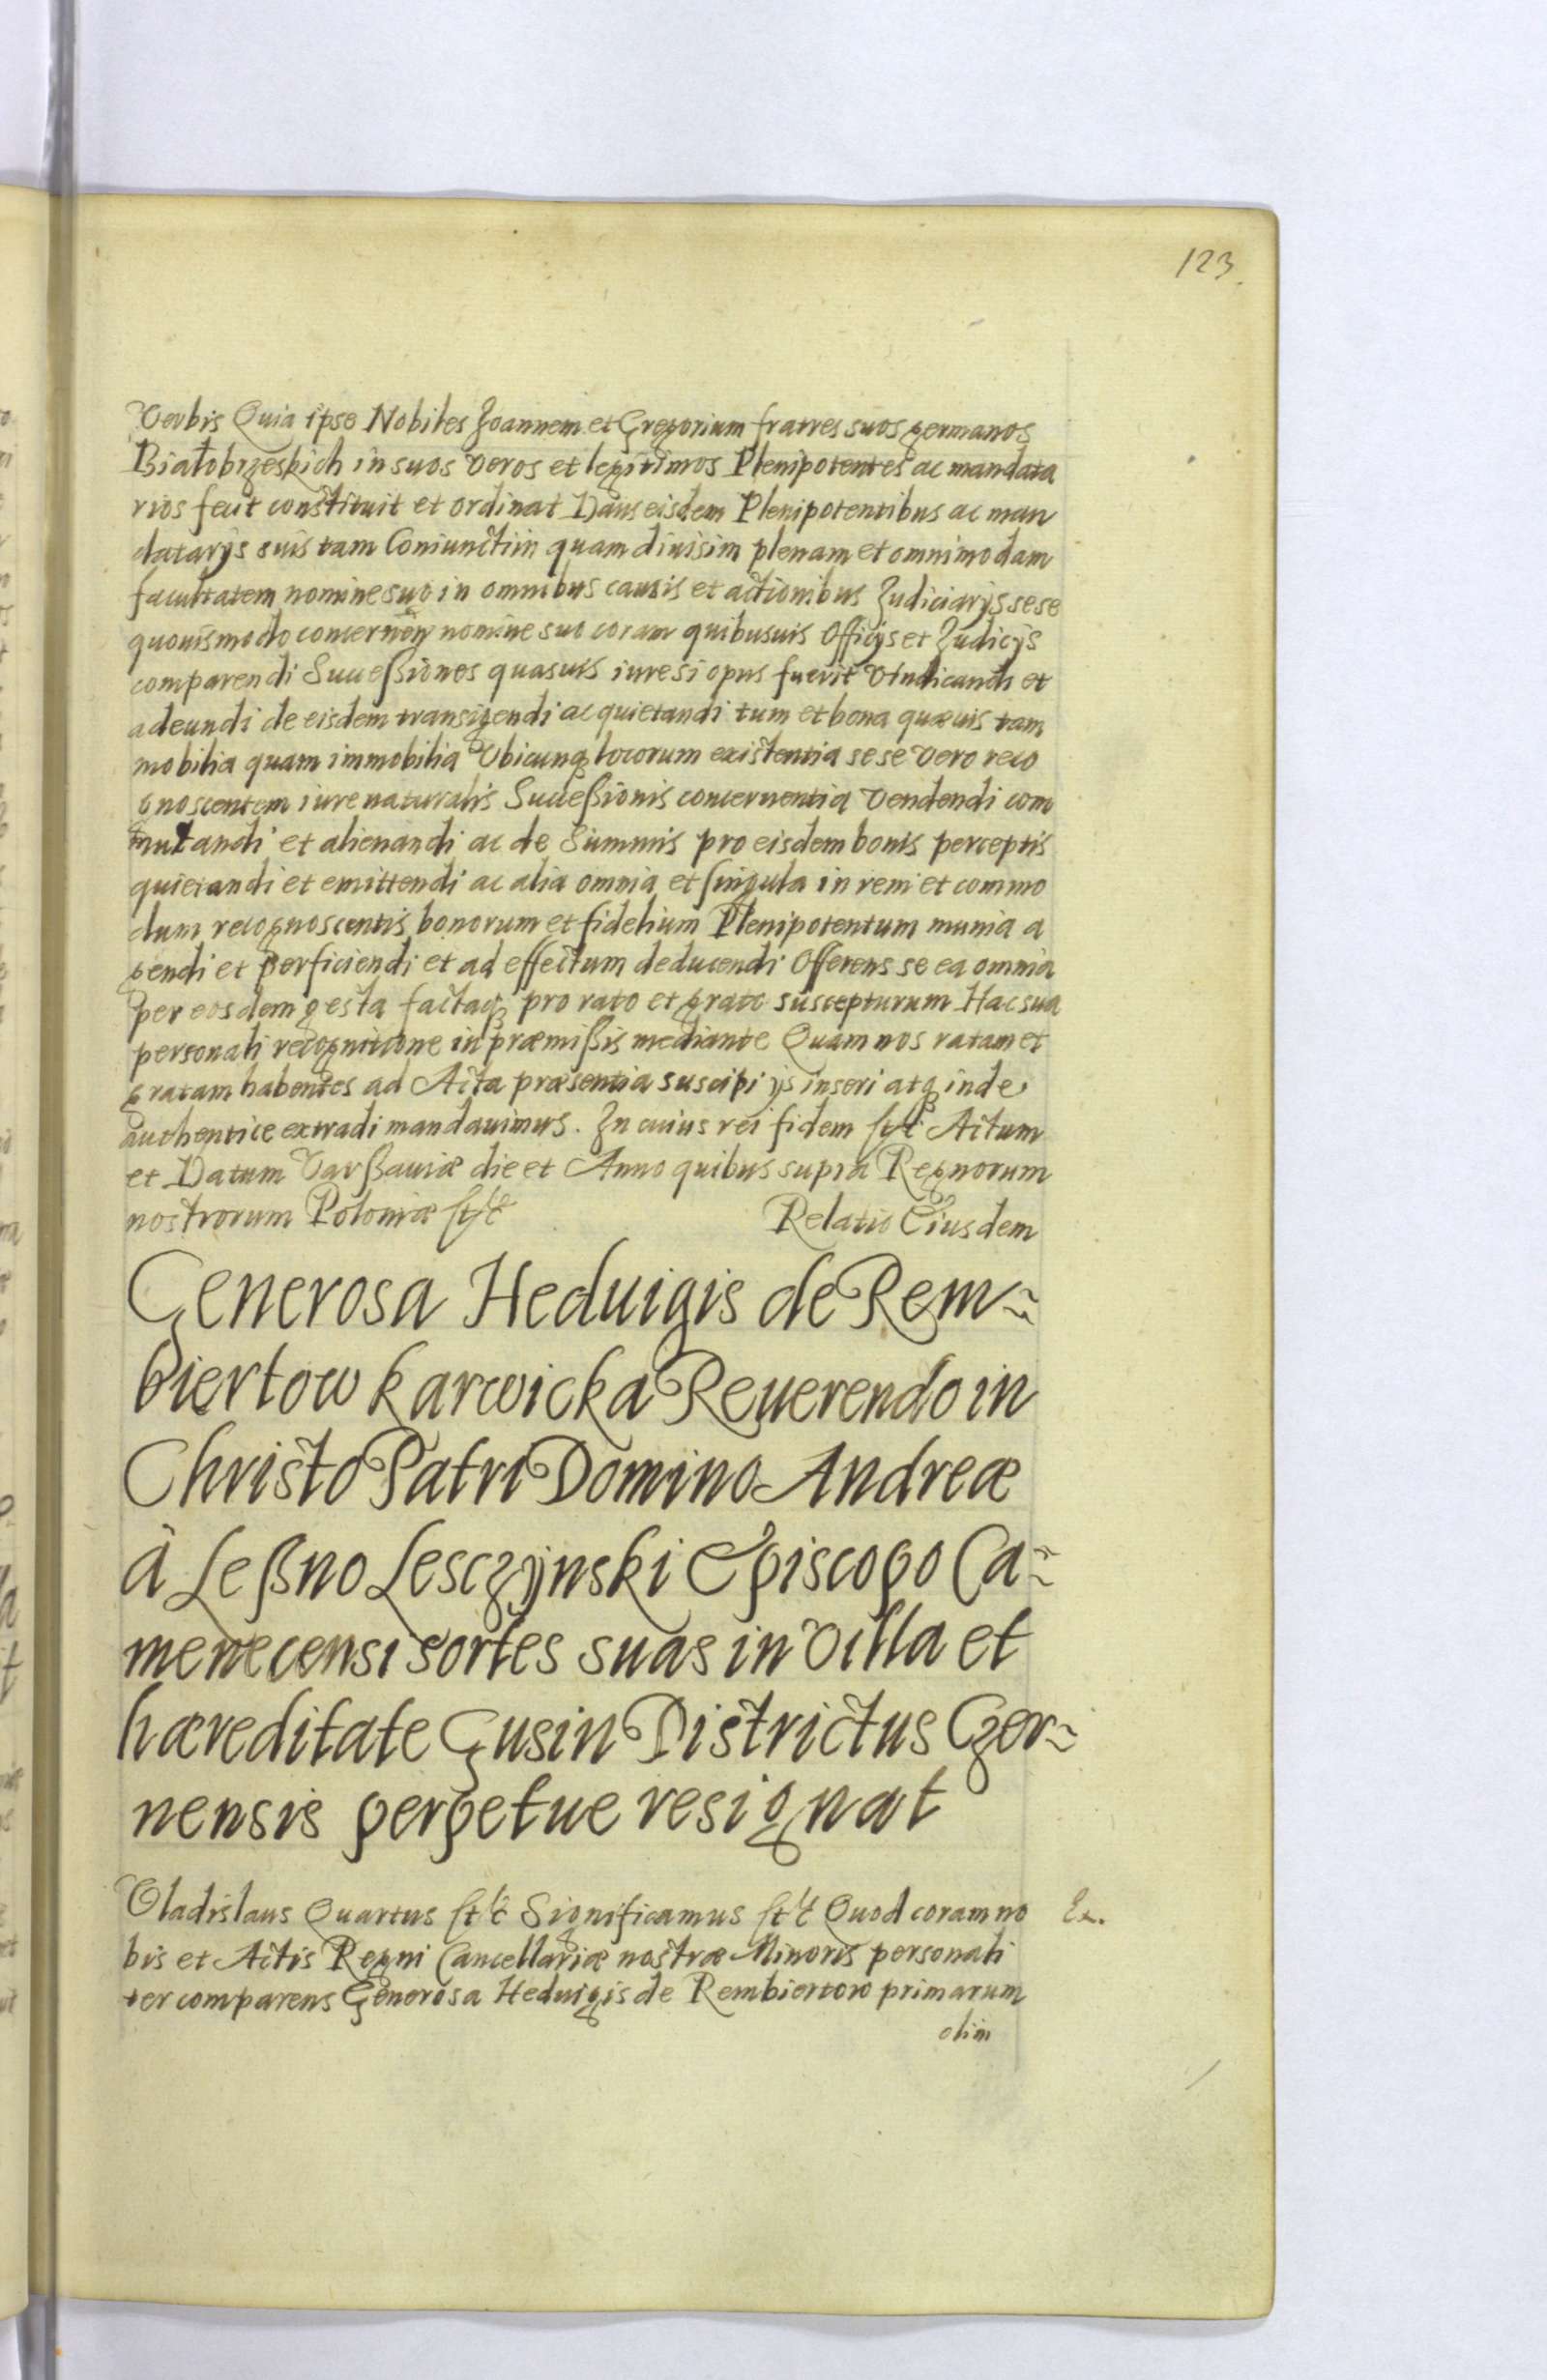 123.
Verbis Quia ipse Nobiles Joannem et Gregorium fratres suos germanos
Białobrzeskich in suos veros et legitimos Plenipotentes ac mandata
rios fecit constituit et ordinat Dans eisdem Plenipotentibus ac man
datarijs suis tam Coniunctim quam diuisim plenam et omnimodam
facultatem nomine suo in omnibus causis et actionibus Judiciarijs sese
quouismodo concernen nomine suo coram quibusuis Officijs et Judicijs
comparendi Succeßiones quasuis iure si opus fuerit Vindicandi et
adeundi de eisdem transigendi ac quietandi tum et bona quæuis tam
mobilia quam immobilia Vbicunq locorum existentia sese vero reco
gnoscentem iure naturalis Succeßionis concernentia vendendi com
mutandi et alienandi ac de Summis pro eisdem bonis perceptis
quietandi et emittendi ac alia omnia et singula in rem et commo
dum recognoscentis bonorum et fidelium Plenipotentum munia a
gendi et perficiendi et ad effectum deducendi Offerens se ea omnia
per eosdem gesta factaq pro rato et grato suscepturum Hac sua
personali recognitione in præmißis mediante Quam nos ratam et
gratam habentes ad Acta præsentia suscipi ijs inseri atq inde
authentice extradi mandauimus. In cuius rei fidem etc Actum
et Datum Varßauiæ die et Anno quibus supra Regnorum
nostrorum Poloniæ etc Relatio Eiusdem
Generosa Heduigis de Rem~
biertow Karwicka Reuerendo in
Christo Patri Domino Andreæ
à Leßno Lesczijnski Episcopo Ca~
menecensi sortes suas in Villa et
hæreditate Gusin Districtus Czer~
nensis perpetue resignat
Vladislaus Quartus etc Significamus etc Quod coram no Ex.
bis et Actis Regni Cancellariæ nostræ Minoris personali
ter comparens Generosa Heduigis de Rembiertow primarum
olim